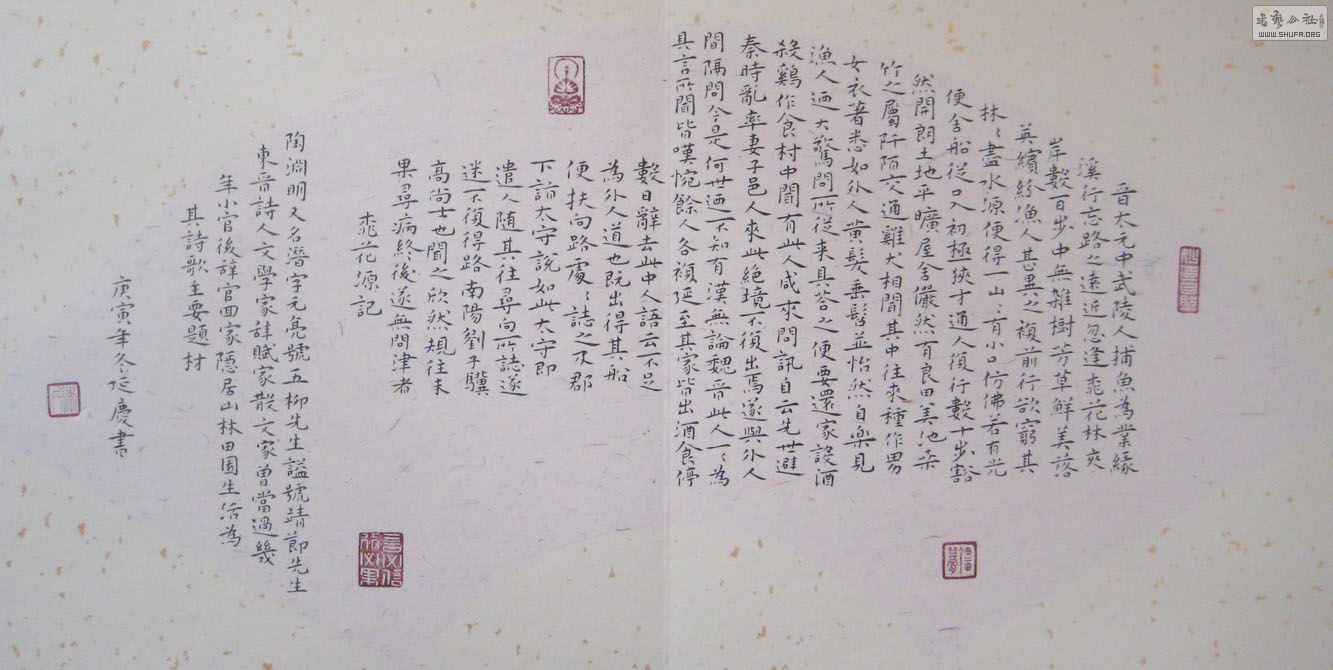 晉太元中武陵人捕魚為業緣
溪行忘路之遠近忽逢桃花林夾
岸數百步中無雜樹芳草鮮美落
英繽紛漁人甚異之複前行欲窮其
林〻盡水源便得一山〻有小口仿佛若有光
便舍船從口入初極狹才通人復行數十步豁
然開朗土地平曠屋舍儼然有良田美池桑
竹之屬阡陌交通雞犬相聞其中往來種作男
女衣著悉如外人黃髮垂髫並怡然自樂見
漁人迺大驚問所從來具答之便要還家設酒
殺鷄作食村中聞有此人咸來問訊自云先世避
秦時亂率妻子邑人來此絕境不復出焉遂與外人
間隔問今是何世迺不知有漢無論魏晉此人一〻為
具言所聞皆嘆惋餘人各複延至其家皆出酒食停
數日辭去此中人語云不足
為外人道也既出得其船
便扶向路處〻誌之及郡
下詣太守說如此太守即
遣人隨其往尋向所誌遂
迷不復得路南陽劉子驥
高尚士也聞之欣然規往未
果尋病終後遂無問津者
桃花源記
陶淵明又名潛字元亮號五柳先生謚號靖節先生
東晉詩人文學家辞賦家散文家曾當過幾
年小官後辞官回家隱居山林田園生活為
其詩歌主要題材
庚寅年冬延慶書
WWW.SHUFA.ORG